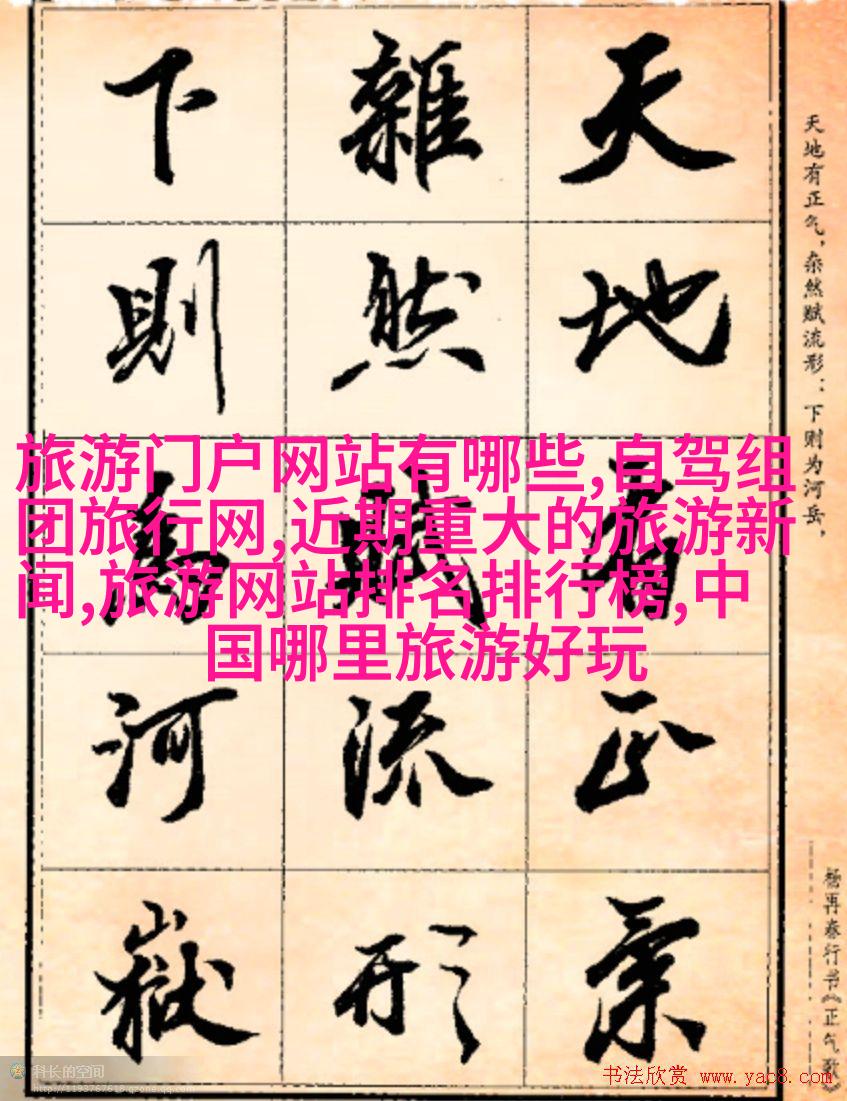 天地有正氣
雜然賦流形
下則為河嶽
天地有正气，杂然赋流形：下则为河岳，
杨再春行书《正气歌》
旅游门户网站有哪些,自驾组
团旅行网,近期重大的旅游新
闻,旅游网站排名排行榜,中
国哪里旅游好玩
科长的空间
http://1193767618.qzone.qq.com
书法欣赏 www.yac8.com